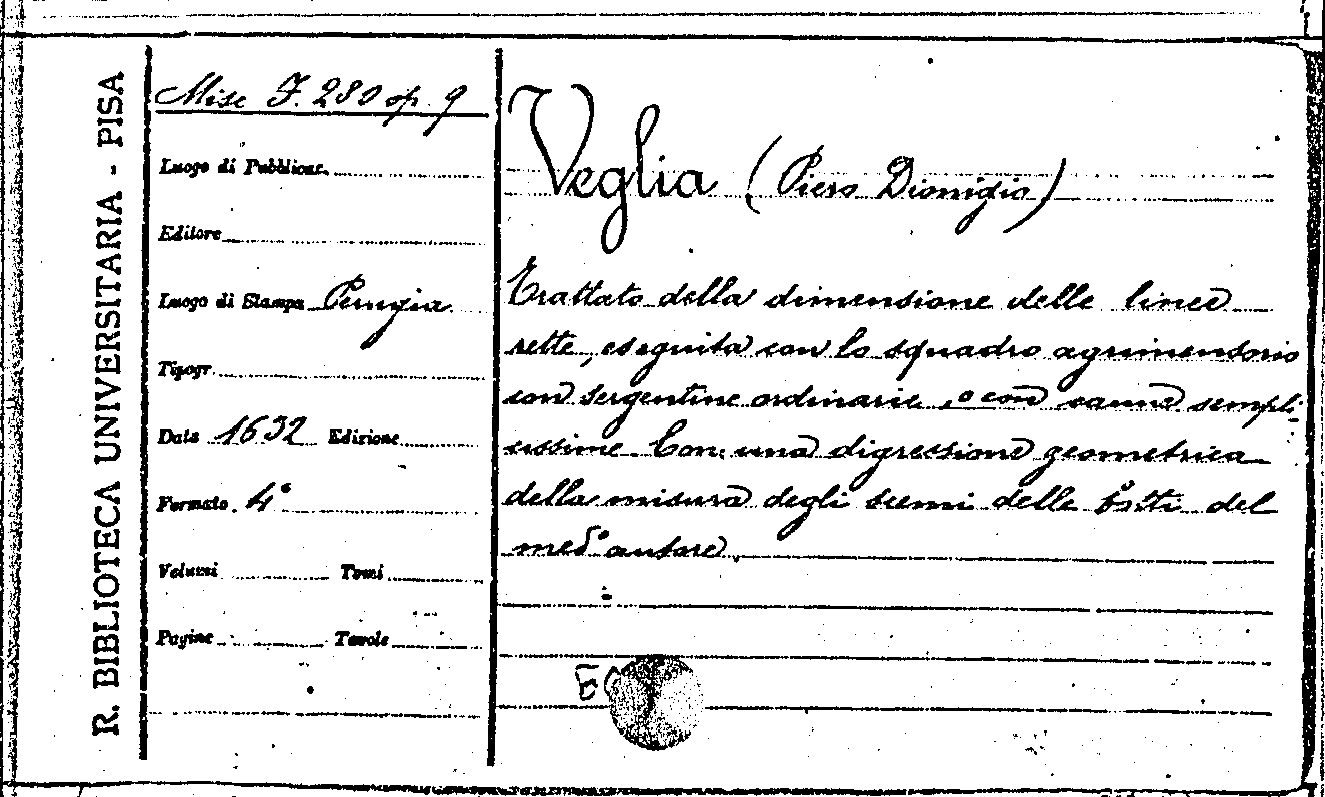 R. BIBLIOTECA UNIVERSITARIA - PISA
Misc F. 280 op. 9
Luogo di Pubblicaz.
Editore
Luogo di Stampa Perugia
Tipogr.
Data 1632 Edizione
Formato 4°
Volumi Tomi
Pagine Tavole
Veglia (Piero Dionigio)
Trattato della dimensione delle linee
rette, eseguita con lo squadro agrimensorio
con sergentine ordinarie, o con canne sempli-
cissime. Con una digressione geometrica
della misura degli scemi delle botti del
med° autore.